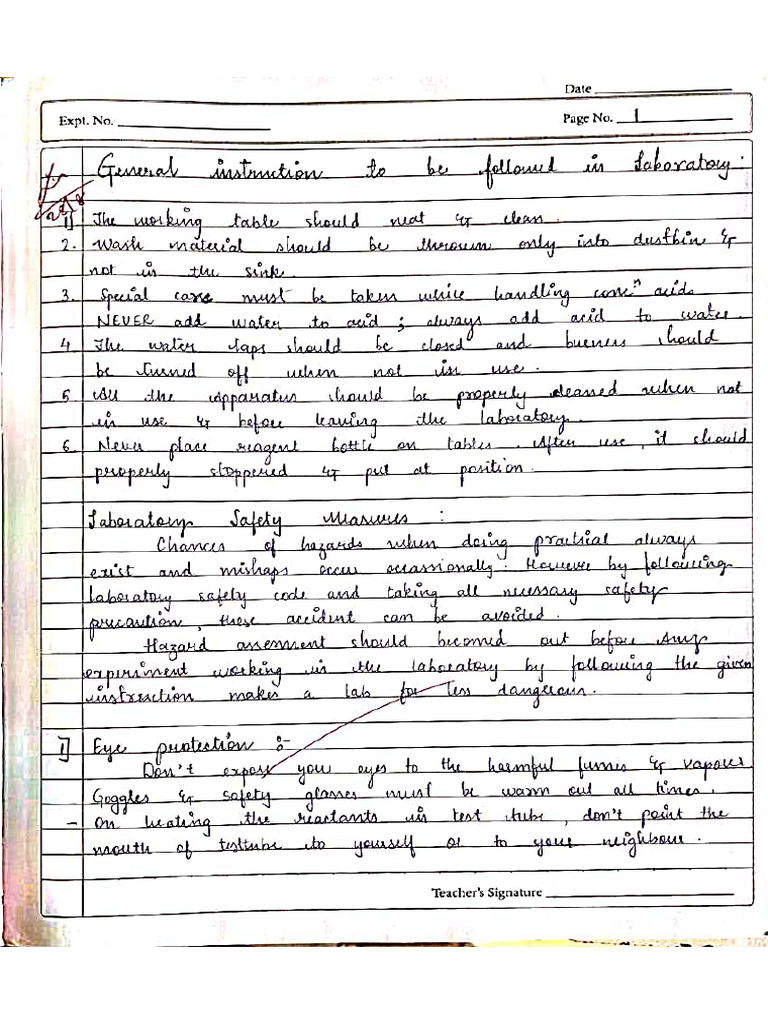 Date
Expt. No.
Page No. 1
General instruction to be followed in Laboratory:
1] The working table should neat & clean.
2. Wash material should be thrown only into dustbin &
not in the sink.
3. Special care must be taken while handling concn acids
NEVER add water to acid; always add acid to water.
4. The water taps should be closed and burners should
be turned off when not in use.
5. All the apparatus should be properly cleaned when not
in use & before leaving the laboratory.
6. Never place reagent bottle on tables. After use, it should
properly stoppered & put at position.
Laboratory Safety Measures :
Chances of hazards when doing practical always
exist and mishaps occur occassionally. However by following
laboratory safety code and taking all necessary safety
precaution, these accident can be avoided.
Hazard assesment should becomed out before any
experiment working in the laboratory by following the given
instruction makes a lab for less dangerous.
1] Eye protection :-
Don't expose you eyes to the harmful fumes & vapours
Goggles & safety glasses must be warm out all times.
- On heating the reactants in test tube, don't point the
mouth of testtube to yourself or to your neighbour.
Teacher's Signature